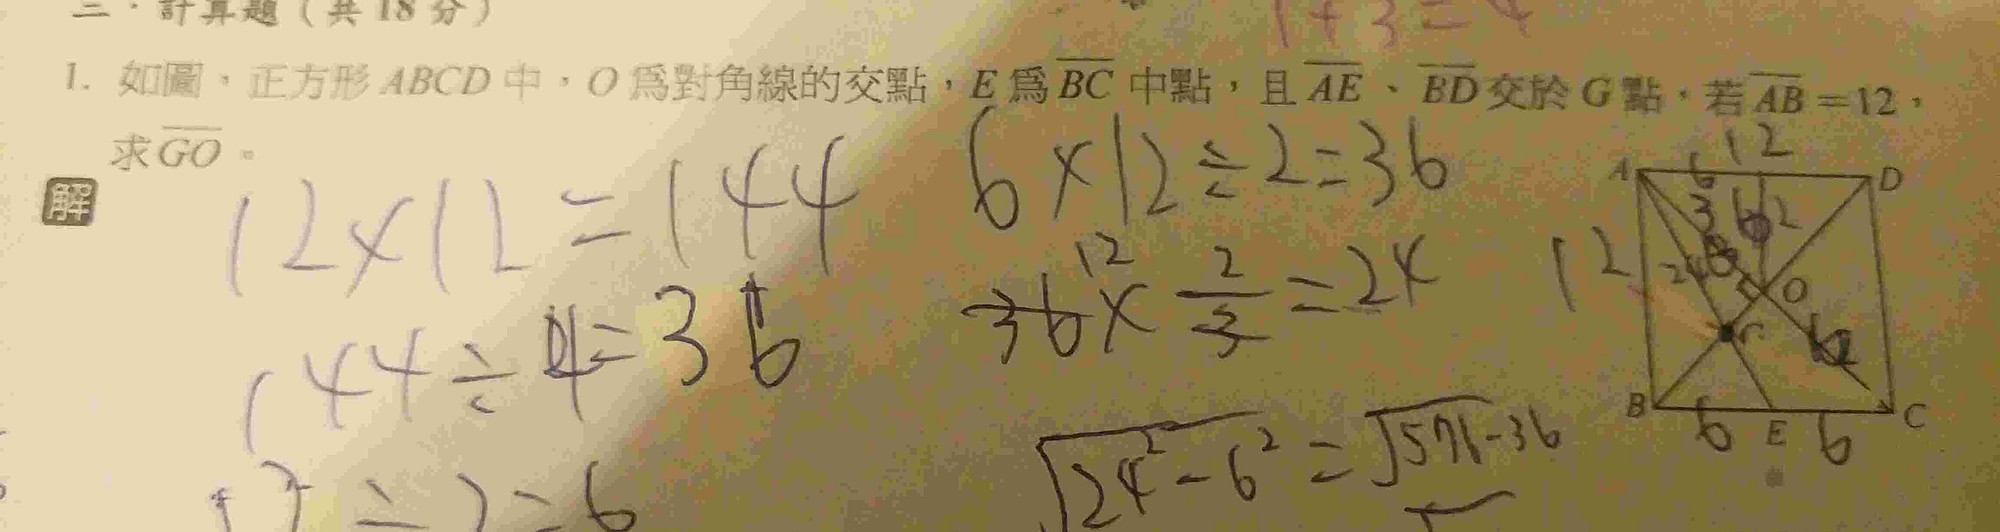 二.計算題(共18分)
1+3=4
1. 如圖,正方形 ABCD 中,O 爲對角線的交點,E 爲 BC 中點,且 AE、BD 交於 G 點,若 AB=12,
求 GO。
解
12×12=144
144÷4=36
12÷2=6
6×12÷2=36
12
36×2/3=24
√24²-6²=√576-36
12
A 6 D
3 6 12
12 24
O
G
B 6 E 6 C